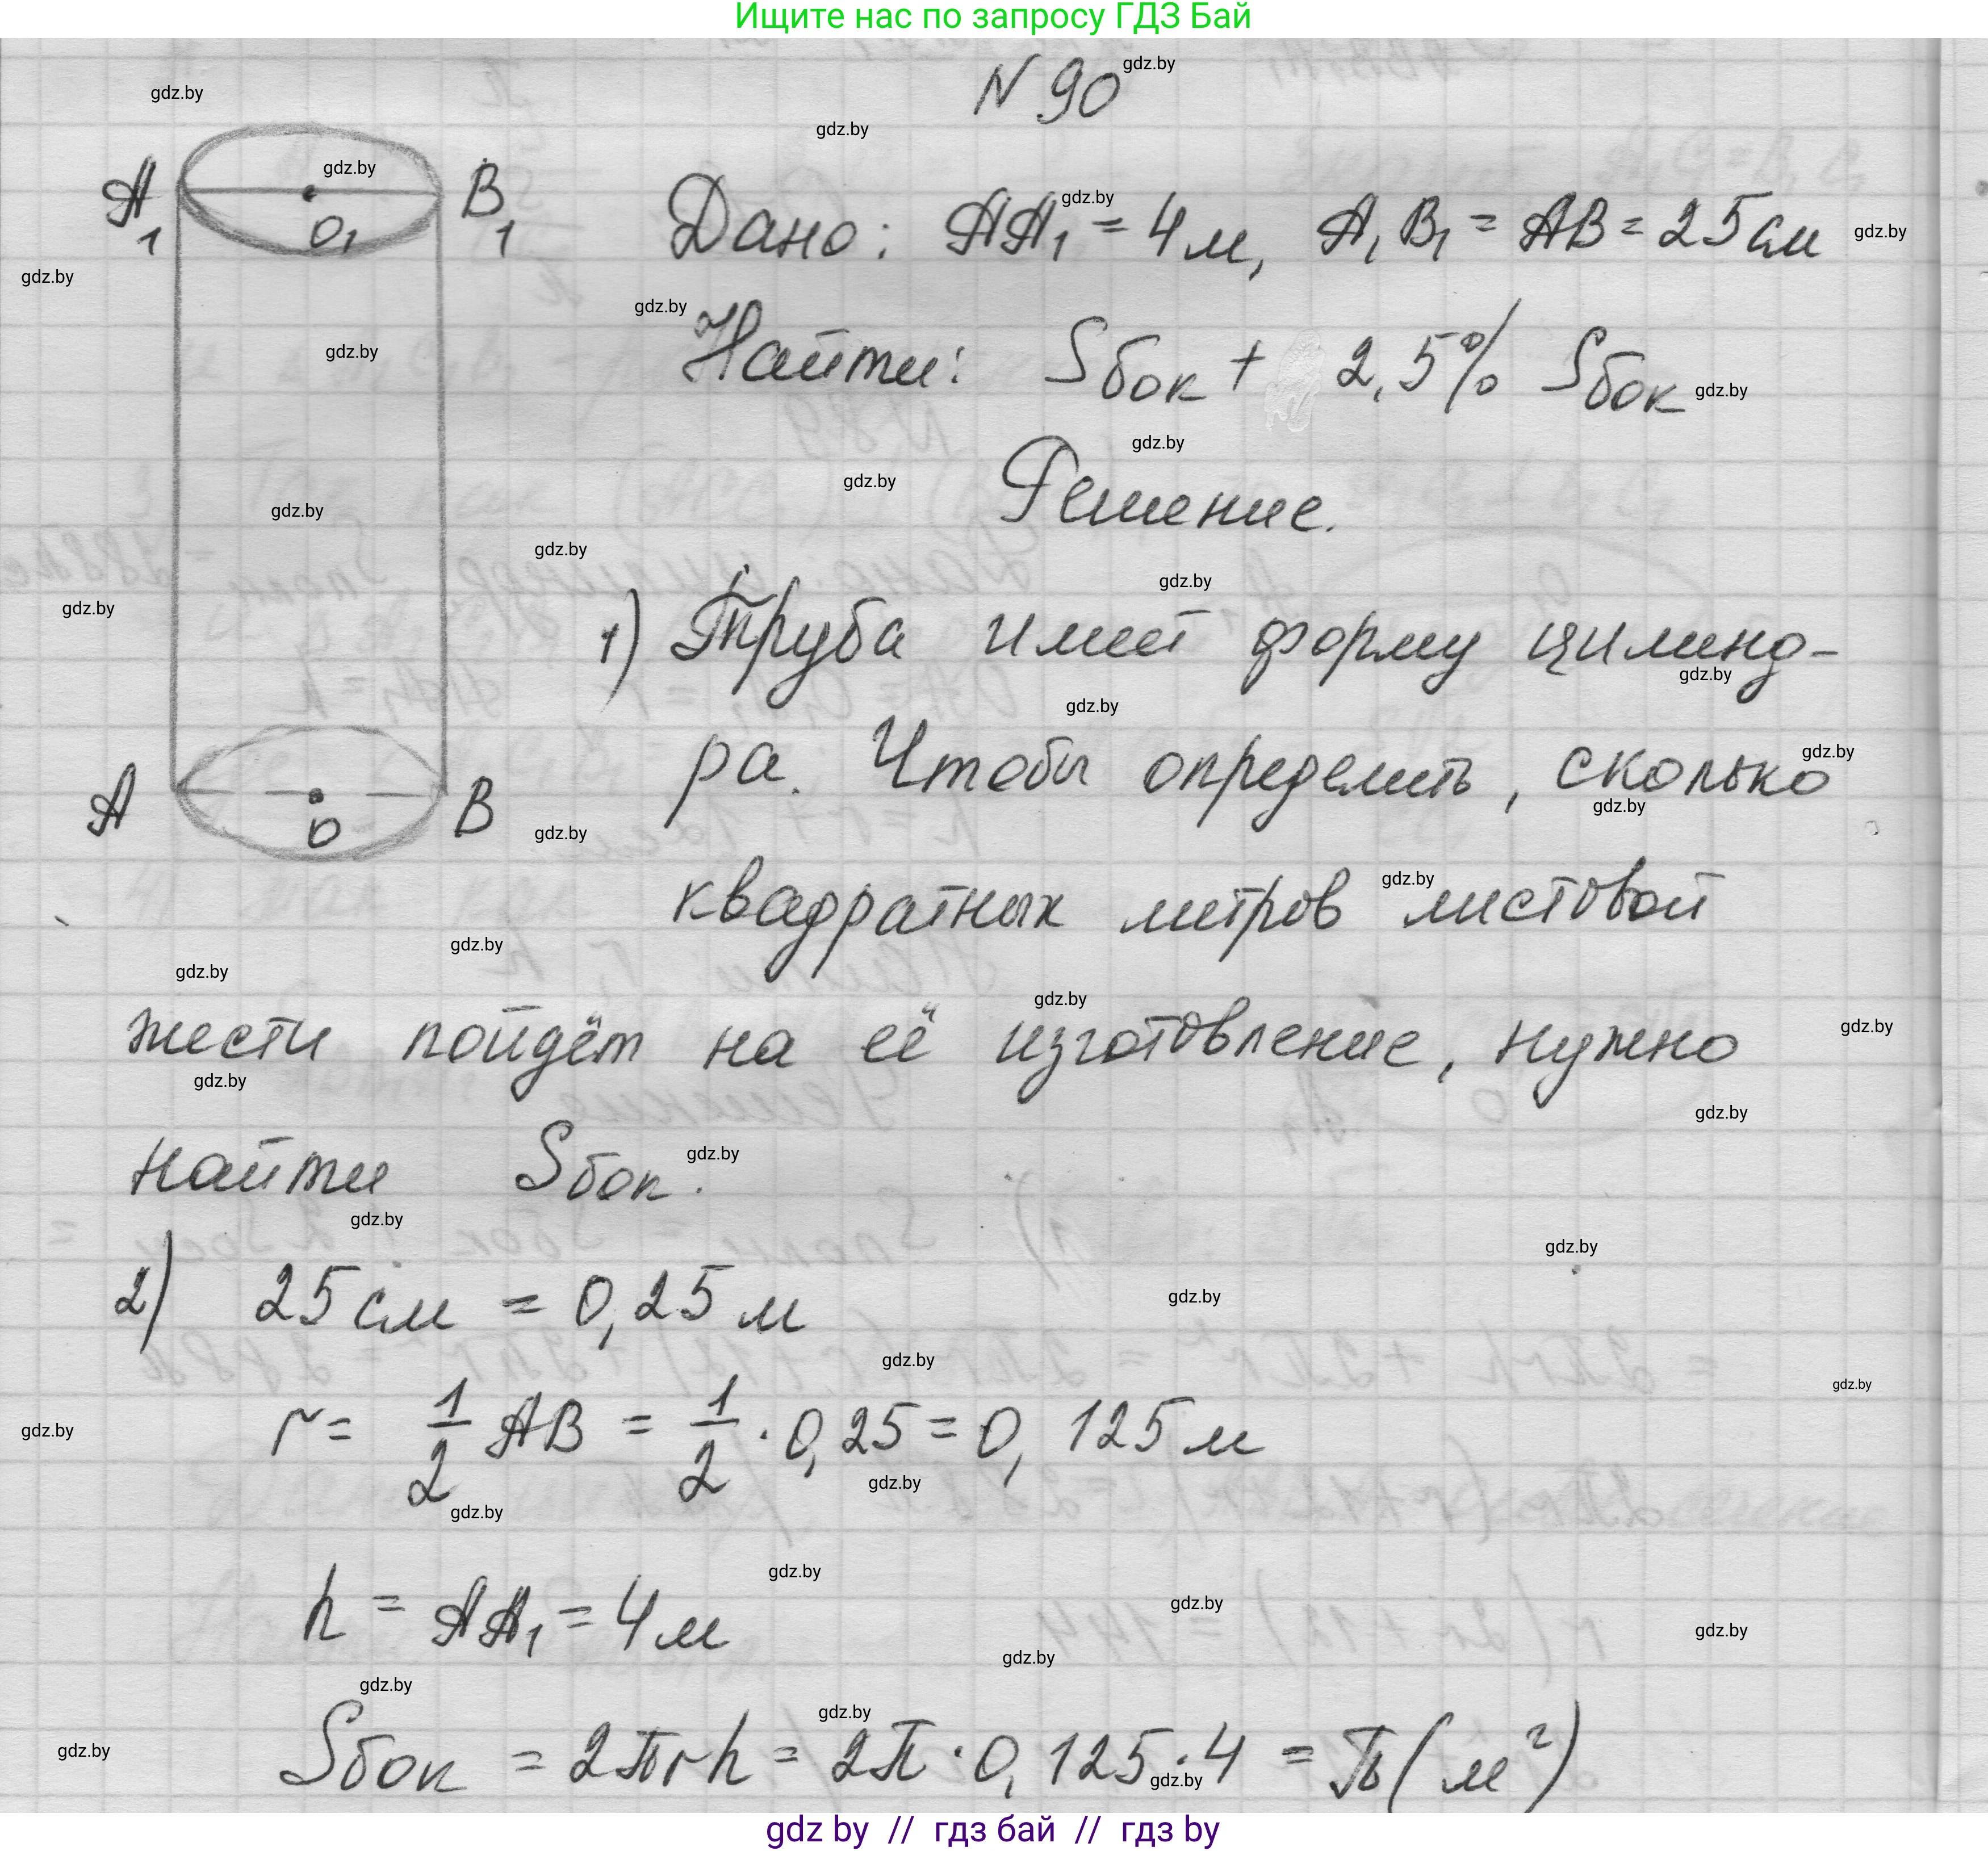 Ищите нас по запросу ГДЗ Бай
N 90
Дано: AA₁ = 4 м, A₁B₁ = AB = 25 см
Найти: Sбок + 2,5% Sбок
Решение.
A₁ O₁ B₁
A O B
1) Труба имеет форму цилинд-
ра. Чтобы определить, сколько
квадратных метров листовой
жести пойдёт на её изготовление, нужно
найти Sбок.
2) 25 см = 0,25 м
r = 1/2 AB = 1/2 · 0,25 = 0,125 м
h = AA₁ = 4 м
Sбок = 2πrh = 2π · 0,125 · 4 = π (м²)
gdz by // гдз бай // гдз by
gdz.by